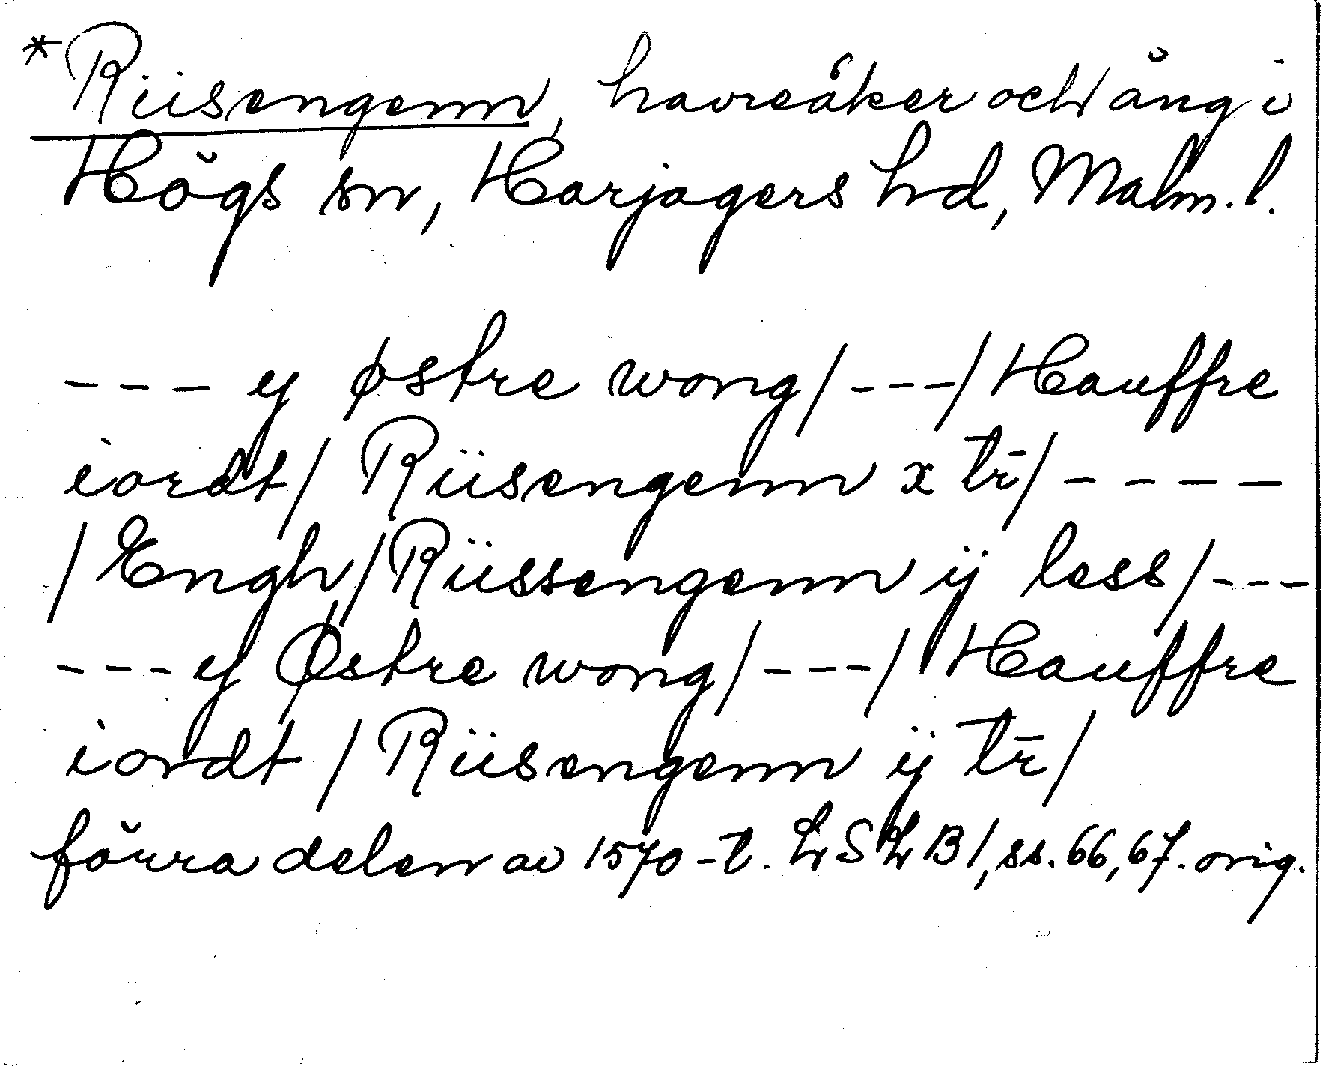 *Riisengenn, havreåker och äng i
Högs sn, Harjagers hd, Malm. l.
--- y østre wong/---/Hauffre
iordt/ Riisengenn x tr̄/----
/Engh/Riissengenn ij less/---
---y Østre wong/---/Hauffre
iordt/Riisengenn ij tr̄/
förra delen av 1570-t. LSLB1, ss. 66, 67. orig.